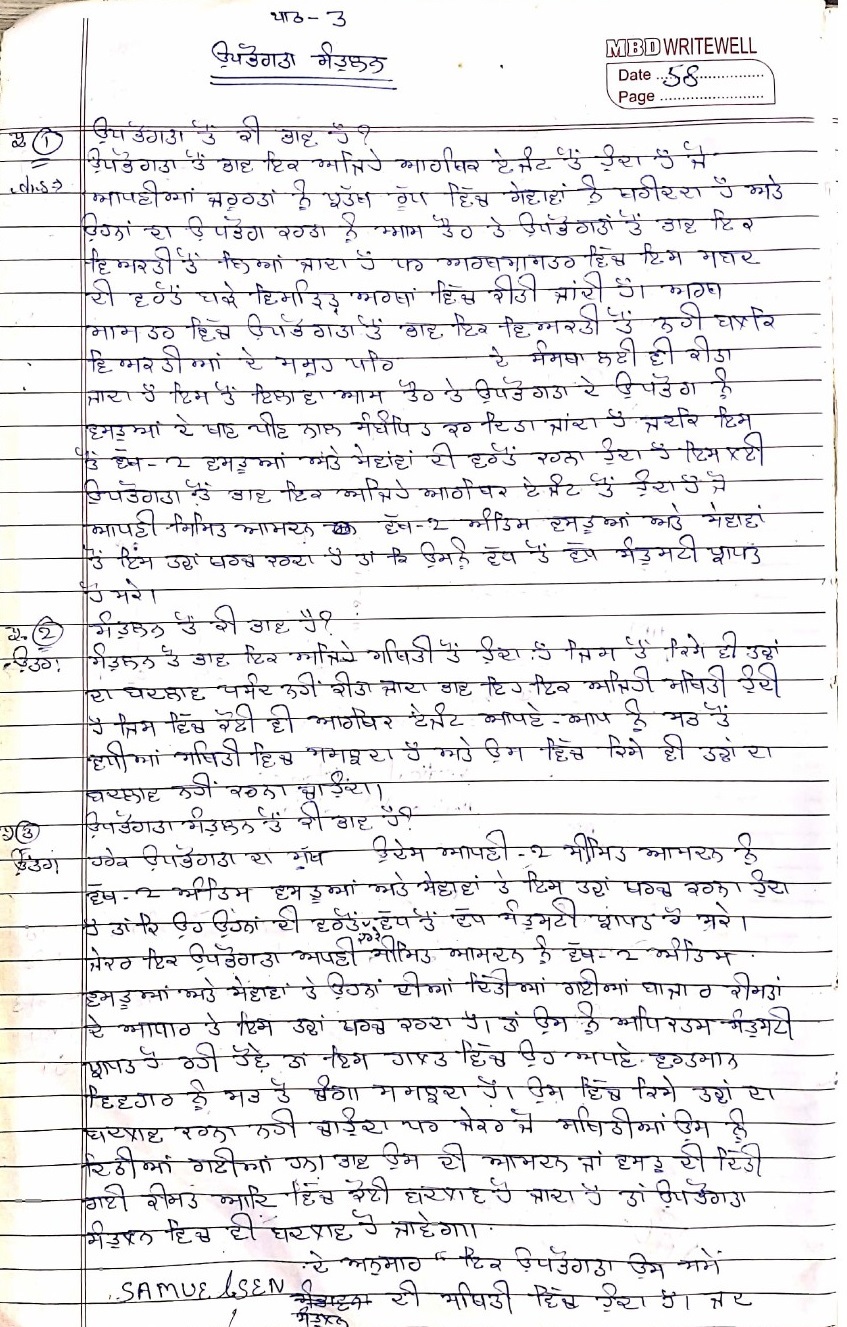 ਪਾਠ - 3
ਉਪਭੋਗਤਾ ਸੰਤੁਲਨ
MBD WRITEWELL
Date ..58..............
Page ...................
ਪ੍ਰ. ① ਉਪਭੋਗਤਾ ਤੋਂ ਕੀ ਭਾਵ ਹੈ?
Ans → ਉਪਭੋਗਤਾ ਤੋਂ ਭਾਵ ਇਕ ਅਜਿਹੇ ਆਰਥਿਕ ਏਜੰਟ ਤੋਂ ਹੁੰਦਾ ਹੈ ਜੋ
ਆਪਣੀਆਂ ਜਰੂਰਤਾਂ ਨੂੰ ਪ੍ਰਤੱਖ ਰੂਪ ਵਿੱਚ ਸੇਵਾਵਾਂ ਨੂੰ ਖਰੀਦਦਾ ਹੈ ਅਤੇ
ਉਹਨਾਂ ਦਾ ਉਪਭੋਗ ਕਰਦਾ ਆਮ ਤੌਰ ਤੇ ਉਪਭੋਗਤਾਂ ਤੋਂ ਭਾਵ ਇਕ
ਵਿਅਕਤੀ ਤੋਂ ਲਿਆਂ ਜਾਦਾ ਹੈ ਪਰ ਅਰਥਸਾਸਤਰ ਵਿੱਚ ਇਸ ਸਬਦ
ਦੀ ਵਰਤੋਂ ਬੜੇ ਵਿਸਤ੍ਰਿਤ ਅਰਥਾਂ ਵਿੱਚ ਕੀਤੀ ਜਾਂਦੀ ਹੈ। ਅਰਥ
ਸਾਸਤਰ ਵਿੱਚ ਉਪਭੋਗਤਾ ਤੋਂ ਭਾਵ ਇਕ ਵਿਅਕਤੀ ਤੋਂ ਨਹੀ ਬਲਕਿ
ਵਿਅਕਤੀਆਂ ਦੇ ਸਮੂਹ ਦੇ ਸੰਸਥਾ ਲਈ ਵੀ ਕੀਤਾ
ਜਾਦਾ ਹੈ ਇਸ ਤੋਂ ਇਲਾਵਾ ਆਮ ਤੌਰ ਤੇ ਉਪਭੋਗਤਾ ਦੇ ਉਪਭੋਗ ਨੂੰ
ਵਸਤੂਆਂ ਦੇ ਖਾਣ ਪੀਣ ਨਾਲ ਸੰਬੰਧਿਤ ਕਰ ਦਿਤਾ ਜਾਂਦਾ ਹੈ ਜਦਕਿ ਇਸ
ਤੋਂ ਵੱਖ-2 ਵਸਤੂਆਂ ਅਤੇ ਸੇਵਾਂਵਾਂ ਦੀ ਵਰਤੋਂ ਕਰਨਾ ਹੁੰਦਾ ਹੈ ਇਸ ਲਈ
ਉਪਭੋਗਤਾ ਤੋਂ ਭਾਵ ਇਕ ਅਜਿਹੇ ਆਰਥਿਕ ਏਜੰਟ ਤੋਂ ਹੁੰਦਾ ਹੈ ਜੋ
ਆਪਣੀ ਸਿਮਿਤ ਆਮਦਨ ਵੱਖ-2 ਅੰਤਿਮ ਵਸਤੂਆਂ ਅਤੇ ਸੇਵਾਵਾਂ
ਤੇ ਇੰਸ ਤਰ੍ਹਾਂ ਖਰਚ ਕਰਦਾ ਹੈ ਤਾਂ ਕਿ ਉਸਨੂੰ ਵੱਧ ਤੋਂ ਵੱਧ ਸੰਤੁਸਟੀ ਪ੍ਰਾਪਤ
ਹੋ ਸਕੇ।
ਪ੍ਰ. ② ਸੰਤੁਲਨ ਤੋਂ ਕੀ ਭਾਵ ਹੈ?
ਉਤਰ: ਸੰਤੁਲਨ ਤੋਂ ਭਾਵ ਇਕ ਅਜਿਹੇ ਸਥਿਤੀ ਤੋਂ ਹੁੰਦਾ ਹੈ ਜਿਸ ਤੋਂ ਕਿਸੇ ਵੀ ਤਰ੍ਹਾਂ
ਦਾ ਬਦਲਾਵ ਪਸੰਦ ਨਹੀਂ ਕੀਤਾ ਜਾਦਾ ਭਾਵ ਇਹ ਇਕ ਅਜਿਹੀ ਸਥਿਤੀ ਹੁੰਦੀ
ਹੈ ਜਿਸ ਵਿੱਚ ਕੋਈ ਵੀ ਆਰਥਿਕ ਏਜੰਟ ਆਪਣੇ-ਆਪ ਨੂੰ ਸਭ ਤੋਂ
ਵਧੀਆਂ ਸਥਿਤੀ ਵਿਚ ਸਮਝਦਾ ਹੈ ਅਤੇ ਉਸ ਵਿੱਚ ਕਿਸੇ ਵੀ ਤਰ੍ਹਾਂ ਦਾ
ਬਦਲਾਵ ਨਹੀਂ ਕਰਨਾ ਚਾਹੁੰਦਾ।
ਪ੍ਰ ③ ਉਪਭੋਗਤਾ ਸੰਤੁਲਨ ਤੋਂ ਕੀ ਭਾਵ ਹੈ?
ਉੱਤਰ ਹਰੇਕ ਉਪਭੋਗਤਾ ਦਾ ਮੁੱਖ ਉਦੇਸ ਆਪਣੀ-2 ਸੀਮਿਤ ਆਮਦਨ ਨੂੰ
ਵੱਖ-2 ਅੰਤਿਮ ਵਸਤੂਆਂ ਅਤੇ ਸੇਵਾਵਾਂ ਤੇ ਇਸ ਤਰ੍ਹਾਂ ਖਰਚ ਕਰਨਾ ਹੁੰਦਾ
ਹੈ ਤਾਂ ਕਿ ਉਹ ਉਹਨਾਂ ਦੀ ਵਰਤੋਂ ਕਰਕੇ ਵੱਧ ਤੋਂ ਵੱਧ ਸੰਤੁਸਟੀ ਪ੍ਰਾਪਤ ਹੋ ਸਕੇ।
ਜੇਕਰ ਇਕ ਉਪਭੋਗਤਾ ਅਪਣੀ ਸੀਮਿਤ ਆਮਦਨ ਨੂੰ ਵੱਖ-2 ਅੰਤਿਮ
ਵਸਤੂਆਂ ਅਤੇ ਸੇਵਾਵਾਂ ਤੇ ਉਹਨਾਂ ਦੀਆਂ ਦਿੱਤੀਆਂ ਗਈਆਂ ਬਾਜਾਰ ਕੀਮਤਾਂ
ਦੇ ਆਧਾਰ ਤੇ ਇਸ ਤਰ੍ਹਾਂ ਖਰਚ ਕਰਦਾ ਹੈ। ਤਾਂ ਉਸ ਨੂੰ ਅਧਿਕਤਮ ਸੰਤੁਸਟੀ
ਪ੍ਰਾਪਤ ਹੋ ਰਹੀ ਹੋਵੇ ਤਾਂ ਇਸ ਹਾਲਤ ਵਿੱਚ ਉਹ ਅਪਣੇ ਵਰਤਮਾਨ
ਵਿਵਹਾਰ ਨੂੰ ਸਭ ਤੋਂ ਚੰਗਾ ਸਮਝਦਾ ਹੈ। ਉਸ ਵਿੱਚ ਕਿਸੇ ਤਰ੍ਹਾਂ ਦਾ
ਬਦਲਾਵ ਕਰਨਾ ਨਹੀ ਚਾਹੁੰਦਾ ਪਰ ਜੇਕਰ ਜੋ ਸਥਿਤੀਆਂ ਉਸ ਨੂੰ
ਦਿਤੀਆਂ ਗਈਆਂ ਹਨ। ਭਾਵ ਉਸ ਦੀ ਆਮਦਨ ਜਾਂ ਵਸਤੂ ਦੀ ਦਿੱਤੀ
ਗਈ ਕੀਮਤ ਆਦਿ ਵਿੱਚ ਕੋਈ ਬਦਲਾਵ ਹੋ ਜਾਦਾ ਹੈ ਤਾਂ ਉਪਭੋਗਤਾ
ਸੰਤੁਲਨ ਵਿਚ ਵੀ ਬਦਲਾਵ ਹੋ ਜਾਵੇਗਾ।
ਦੇ ਅਨੁਸਾਰ " ਇਕ ਉਪਭੋਗਤਾ ਉਸ ਸਮੇਂ
SAMUELSEN ਸੰਤੁਲਨ ਦੀ ਸਥਿਤੀ ਵਿੱਚ ਹੁੰਦਾ ਹੈ। ਜਦ